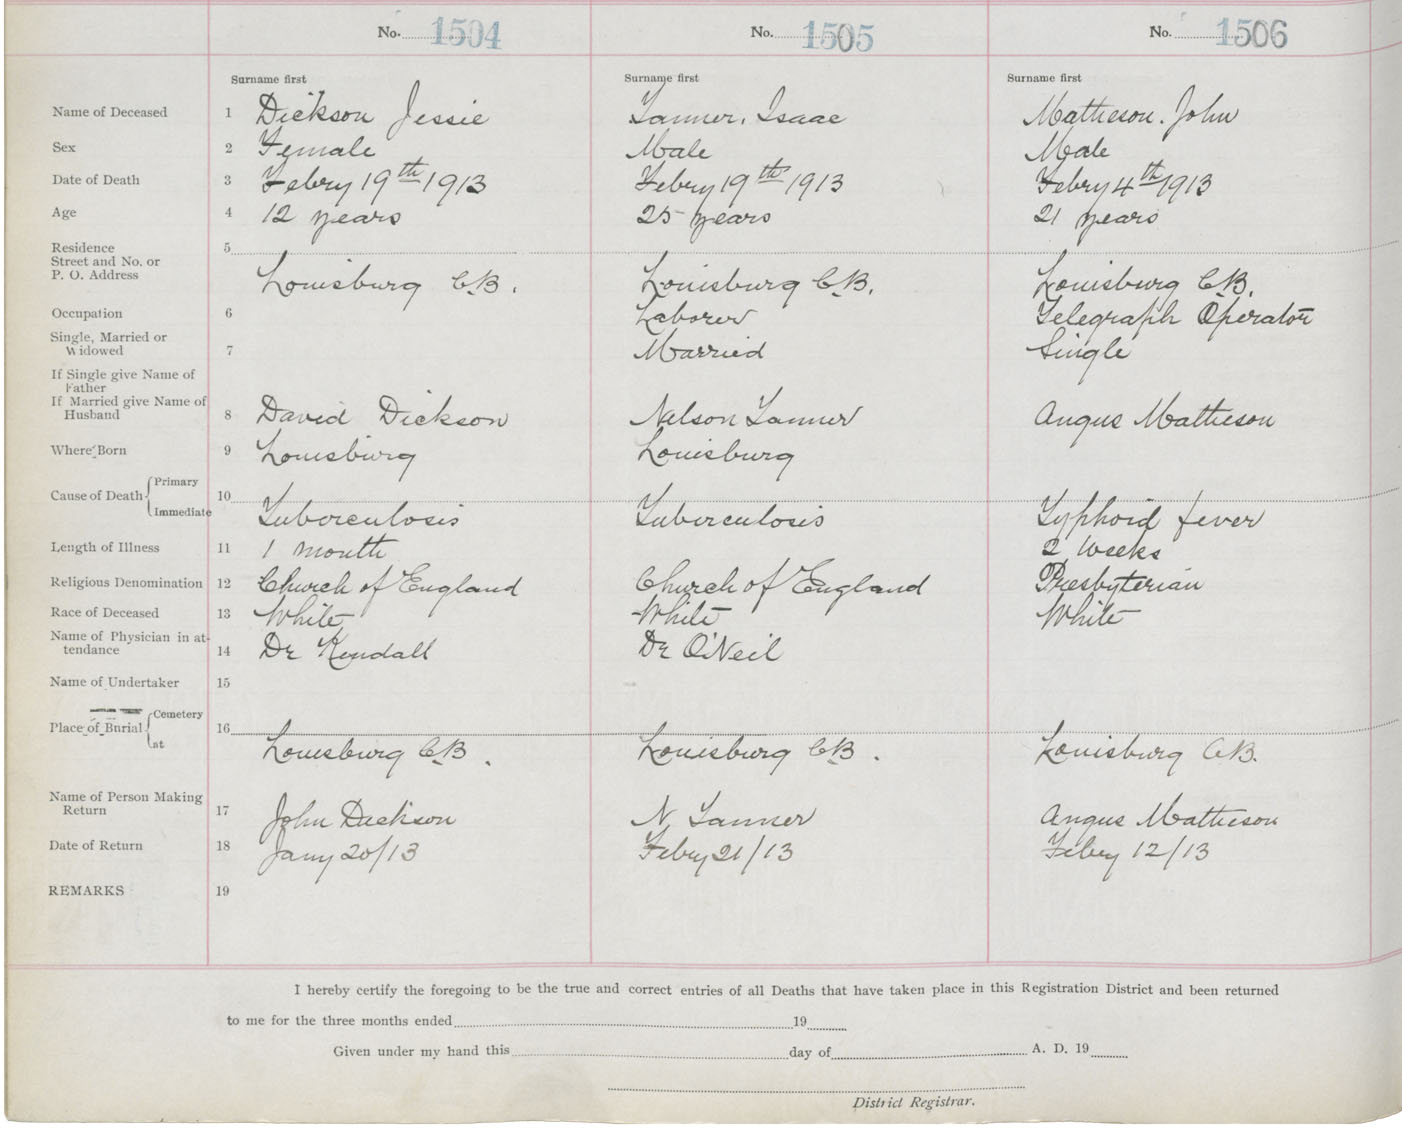 No. 1504 No. 1505 No. 1506
Surname first Surname first Surname first
Name of Deceased 1 Dickson Jessie Tanner, Isaac Matheson. John
Sex 2 Female Male Male
Date of Death 3 Febry 19th 1913 Febry 19th 1913 Febry 4th 1913
Age 4 12 years 25 years 21 years
Residence 5
Street and No. or
P. O. Address Louisburg C.B. Louisburg C.B. Louisburg C.B.
Occupation 6 Laborer Telegraph Operator
Single, Married or
Widowed 7 Married Single
If Single give Name of
Father
If Married give Name of
Husband 8 David Dickson Nelson Tanner Angus Matheson
Where Born 9 Louisburg Louisburg
Primary
Cause of Death 10
Immediate Tuborculosis Tuberculosis Typhoid fever
Length of Illness 11 1 month 2 Weeks
Religious Denomination 12 Church of England Church of England Presbyterian
Race of Deceased 13 White White White
Name of Physician in at-
tendance 14 Dr Kendall Dr O'Neil
Name of Undertaker 15
Cemetery
Place of Burial 16
at Louisburg C.B. Louisburg C.B. Louisburg C.B.
Name of Person Making
Return 17 John Dickson N. Tanner Angus Matheson
Date of Return 18 Jany 20/13 Febry 21/13 Febry 12/13
REMARKS 19
I hereby certify the foregoing to be the true and correct entries of all Deaths that have taken place in this Registration District and been returned
to me for the three months ended 19
Given under my hand this day of A. D. 19
District Registrar.